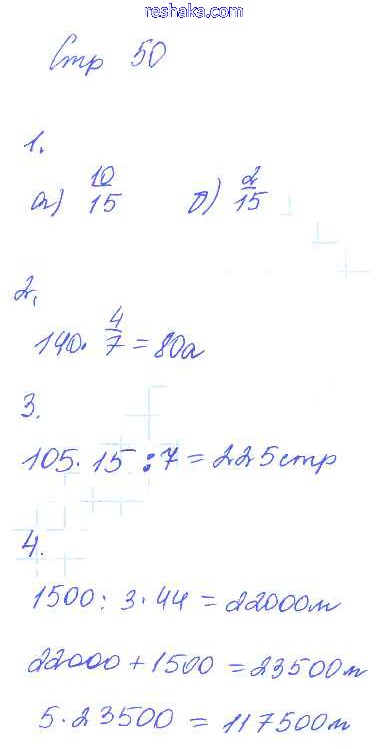 reshaka.com
Стр 50
1.
а) 10/15 б) 2/15
2.
140 · 4/7 = 80а
3.
105 · 15 : 7 = 225стр
4.
1500 : 3 · 44 = 22000м
22000 + 1500 = 23500м
5 · 23500 = 117500м